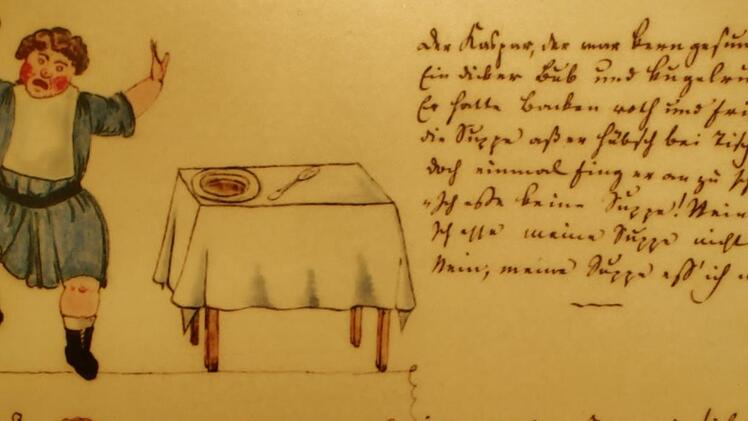 Der Kaspar, der war kerngesun
Ein dicker Bub und kugelru
Er hatte Backen roth und fri
die Suppe aß er hübsch bei Tisc
doch einmal fing er an zu
"Ich esse keine Suppe! Nein
Ich esse meine Suppe nicht
Nein, meine Suppe ess' ich